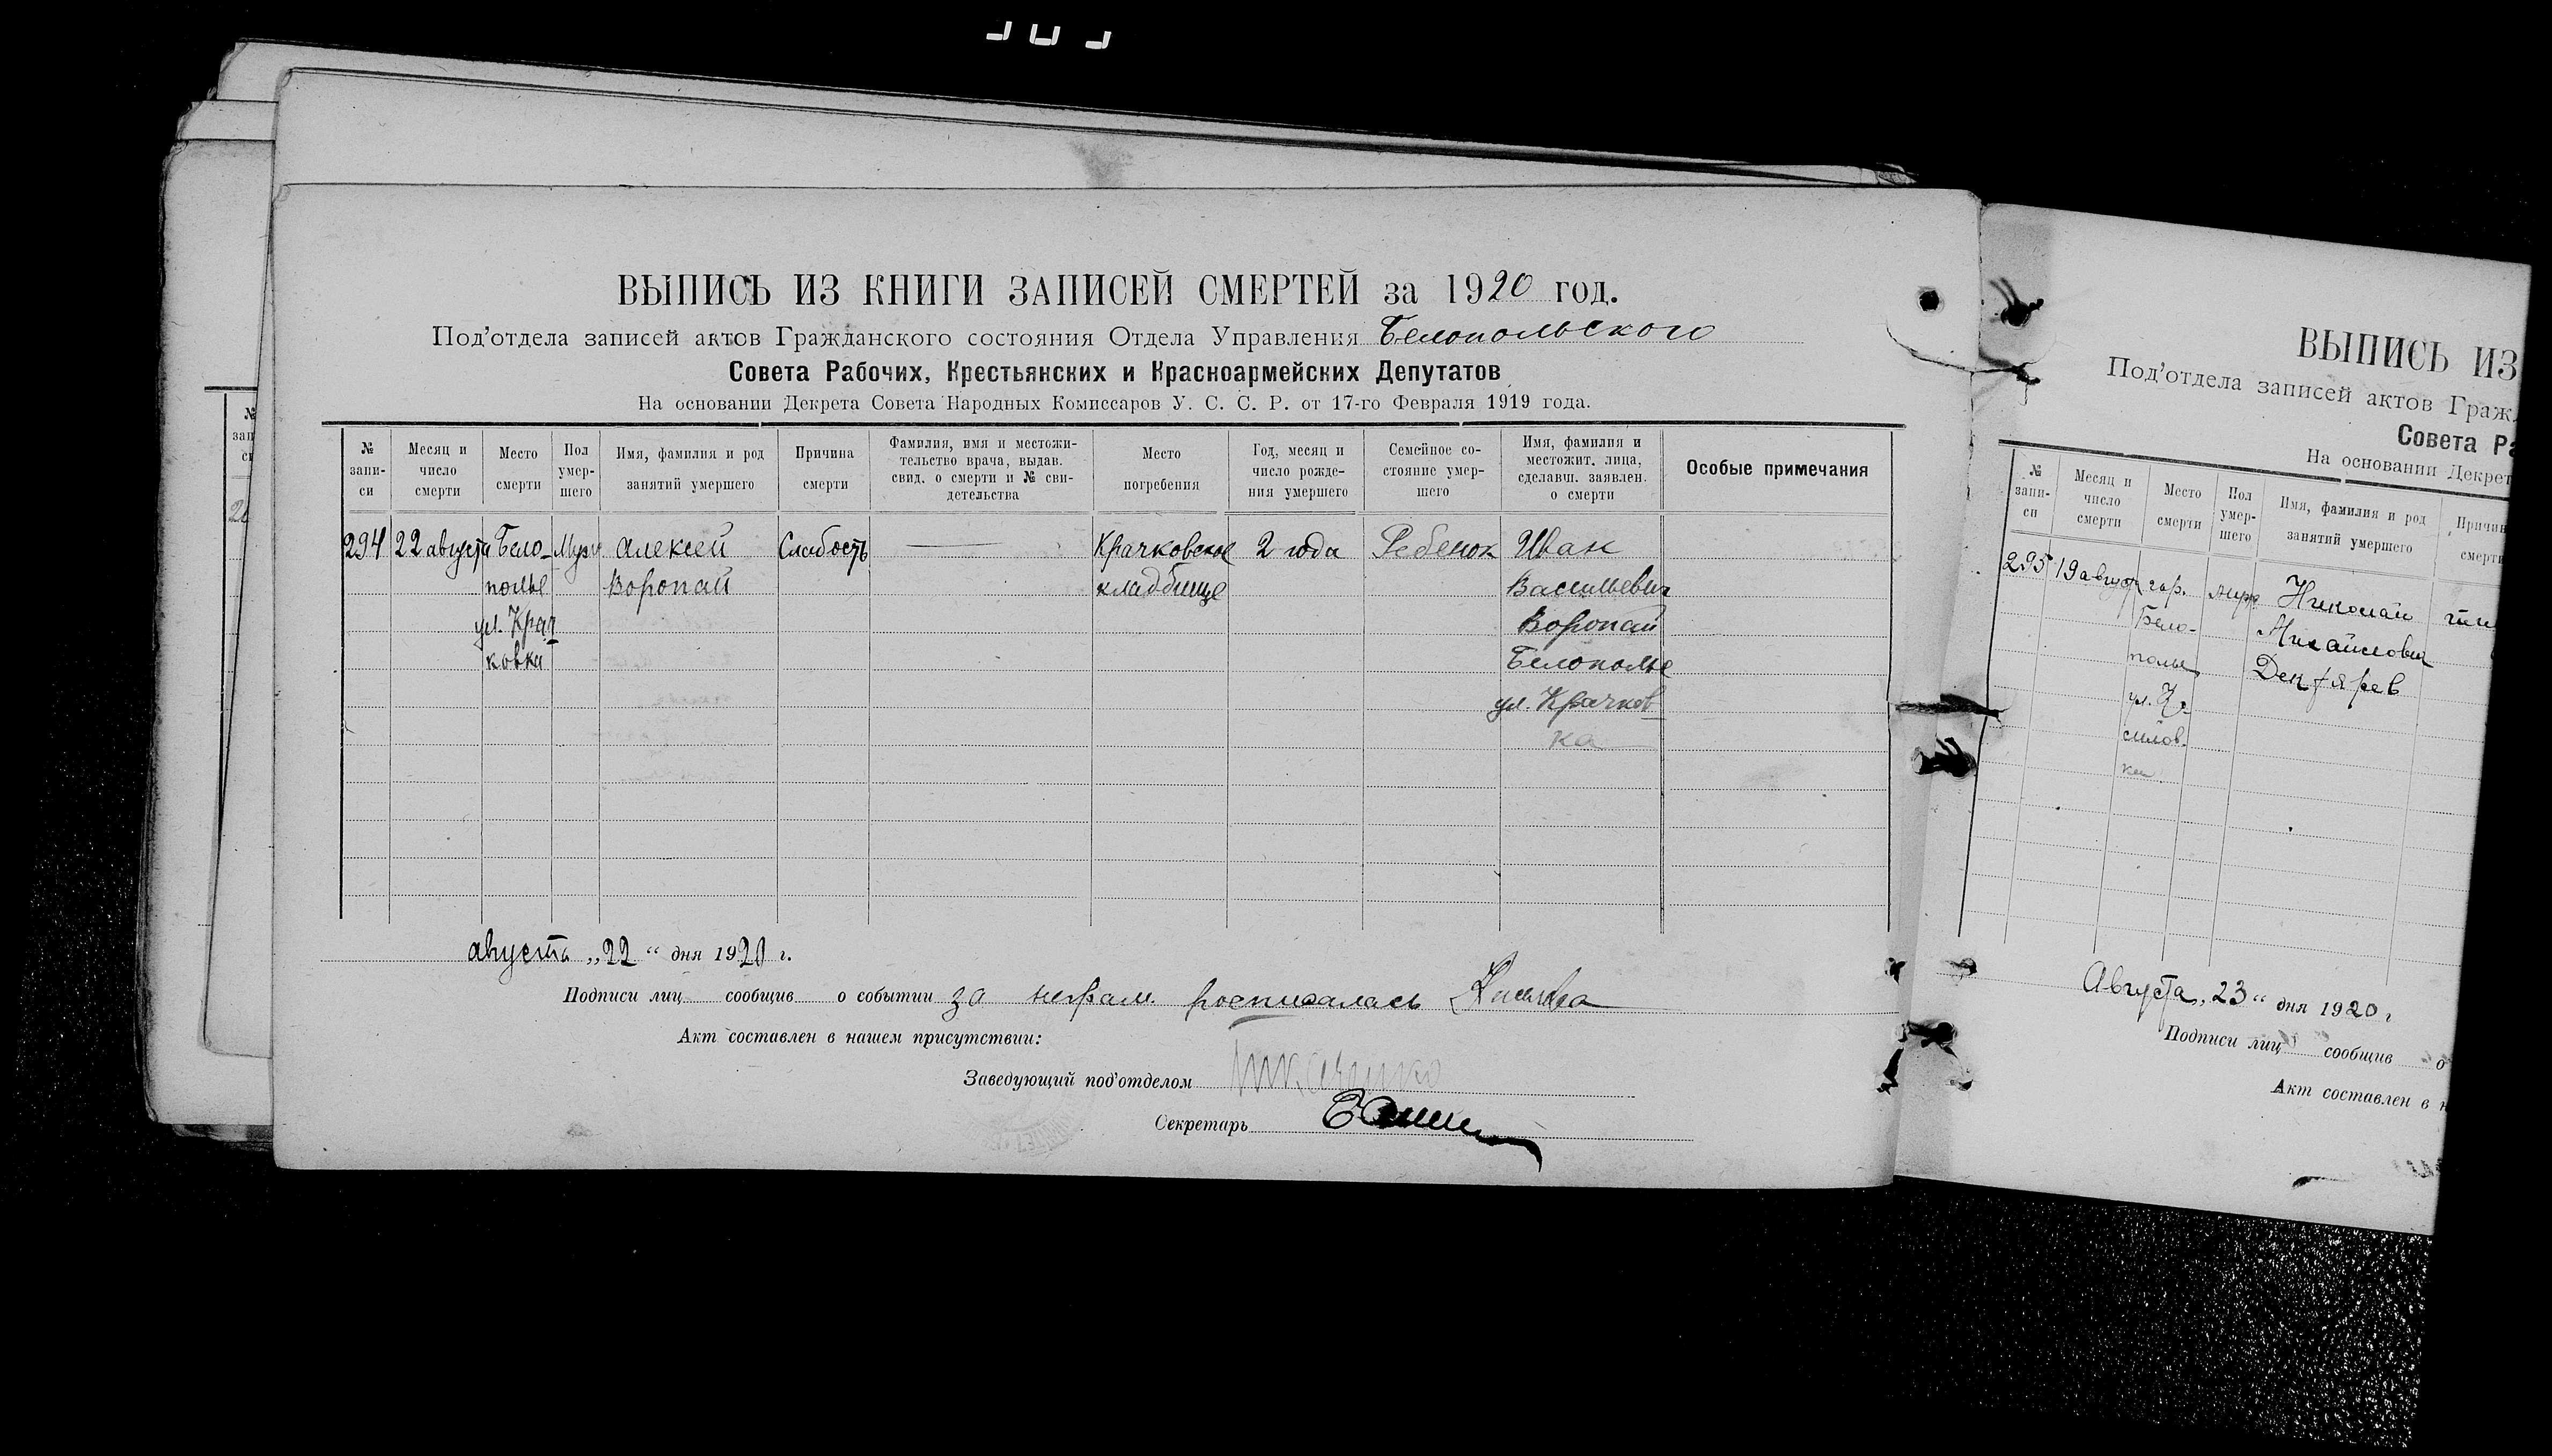 ВЫПИСЬ ИЗ КНИГИ ЗАПИСЕЙ СМЕРТЕЙ за 1920 год.
Под'отдела записей актов Гражданского состояния Отдела Управления Белопольского
Совета Рабочих, Крестьянских и Красноармейских Депутатов
На основании Декрета Совета Народных Комиссаров У. С. С. Р. от 17-го Февраля 1919 года.
№ запи-
си
Месяц и
число
смерти
Место
смерти
Пол
умер-
шего
Имя, фамилия и род
занятий умершего
Причина
смерти
Фамилия, имя и местожи-
тельство врача, выдав.
свид. о смерти и № сви-
детельства
Место
погребения
Год, месяц и
число рожде-
ния умершего
Семейное со-
стояние умер-
шего
Имя, фамилия и
местожит. лица,
сделавш. заявлен.
о смерти
Особые примечания
294 22 августа Бело- Муж Алексей Слабость — Крачковское 2 года Ребенок Иван
полье Воропай кладбище Васильевич
ул. Крач Воропай
ковка Белополье
ул. Крачков
ка
августа „22“ дня 1920 г.
Подписи лиц сообщив о событии за неграм. росписалась
Акт составлен в нашем присутствии:
Заведующий под'отделом
Секретарь
ВЫПИСЬ ИЗ
Под'отдела записей актов Граж
Совета Ра
На основании Декрет
№
запи-
си
Месяц и
число
смерти
Место
смерти
Пол
умер-
шего
Имя, фамилия и род
занятий умершего
Причин
смерти
295 19 август гор. муж Николай
Бело- Михайлович
полье Дехтярев
ул.
Августа „23“ дня 1920 г
Подписи лиц сообщив о
Акт составлен в н